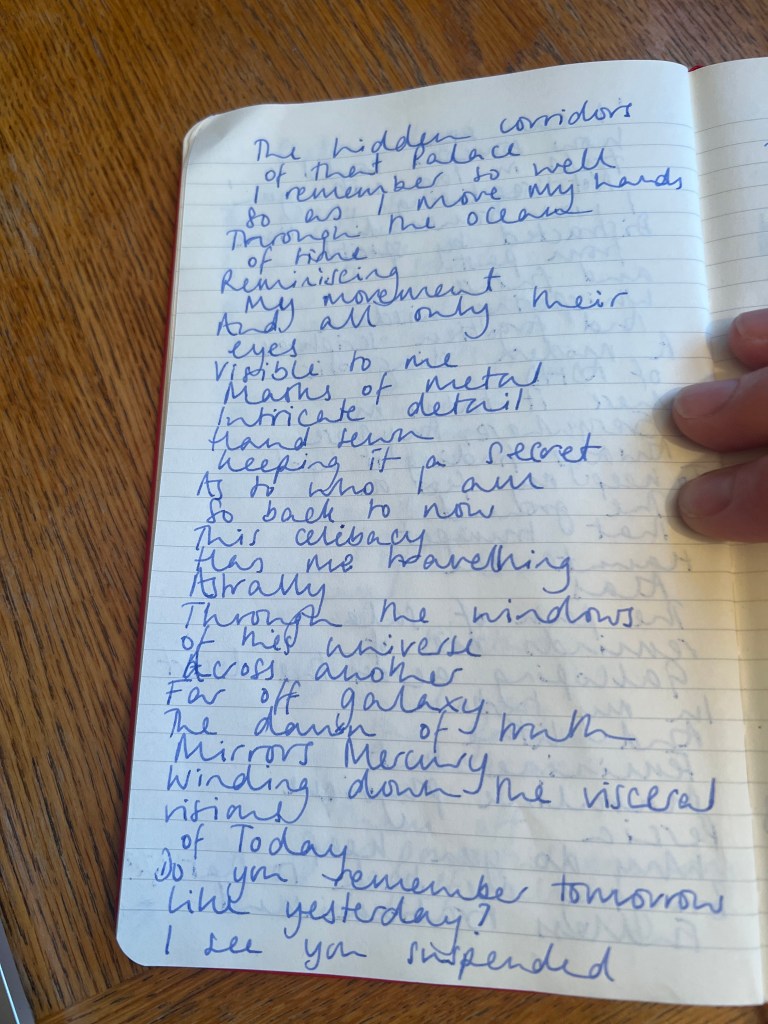 The hidden corridors
of that Palace
I remember so well
So as I move my hands
Through the oceans
of time
Reminiscing
My movement
And all only their
eyes
Visible to me
Masks of metal
Intricate detail
Hand sewn
keeping it a secret
As to who I am
So back to now
This celibacy
Has me travelling
Astrally
Through the windows
of this universe
Across another
Far off galaxy
The dawn of truth
Mirrors Mercury
Winding down the visceral
visions
of Today
Do you remember tomorrow
like yesterday?
I see you suspended